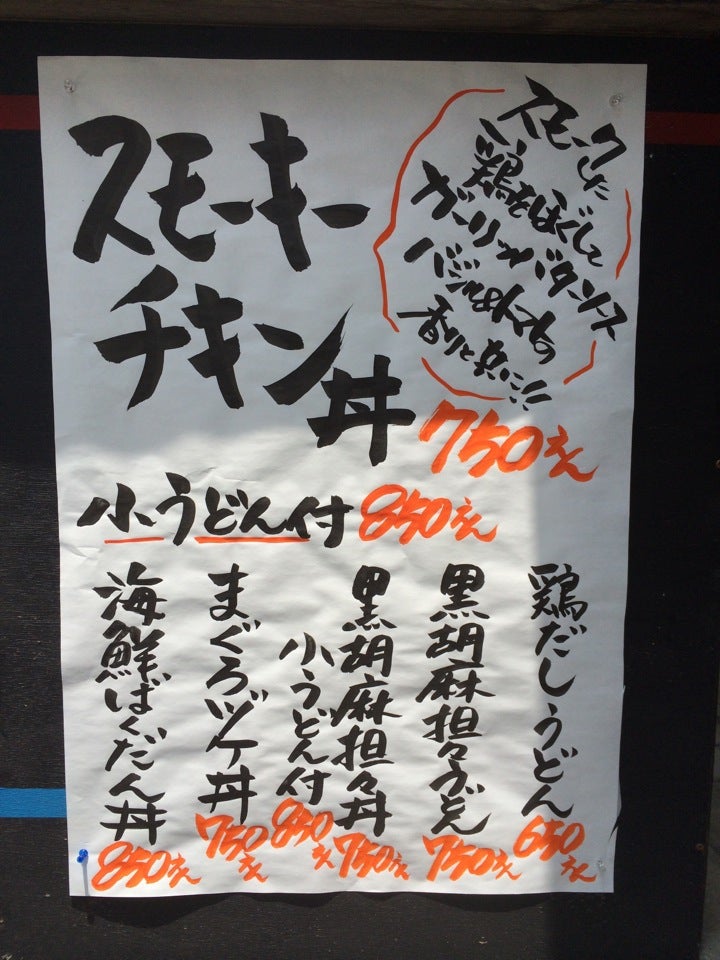 スモーキー
チキン丼
750えん
スモークした
鶏をほぐして
ガーリックバターソース
バジル&トマトの
香りと共に!!
小うどん付 850えん
鶏だしうどん
650えん
黒胡麻担々うどん
750えん
黒胡麻担々丼
750えん
小うどん付
850えん
まぐろヅケ丼
750えん
海鮮ばくだん丼
850えん